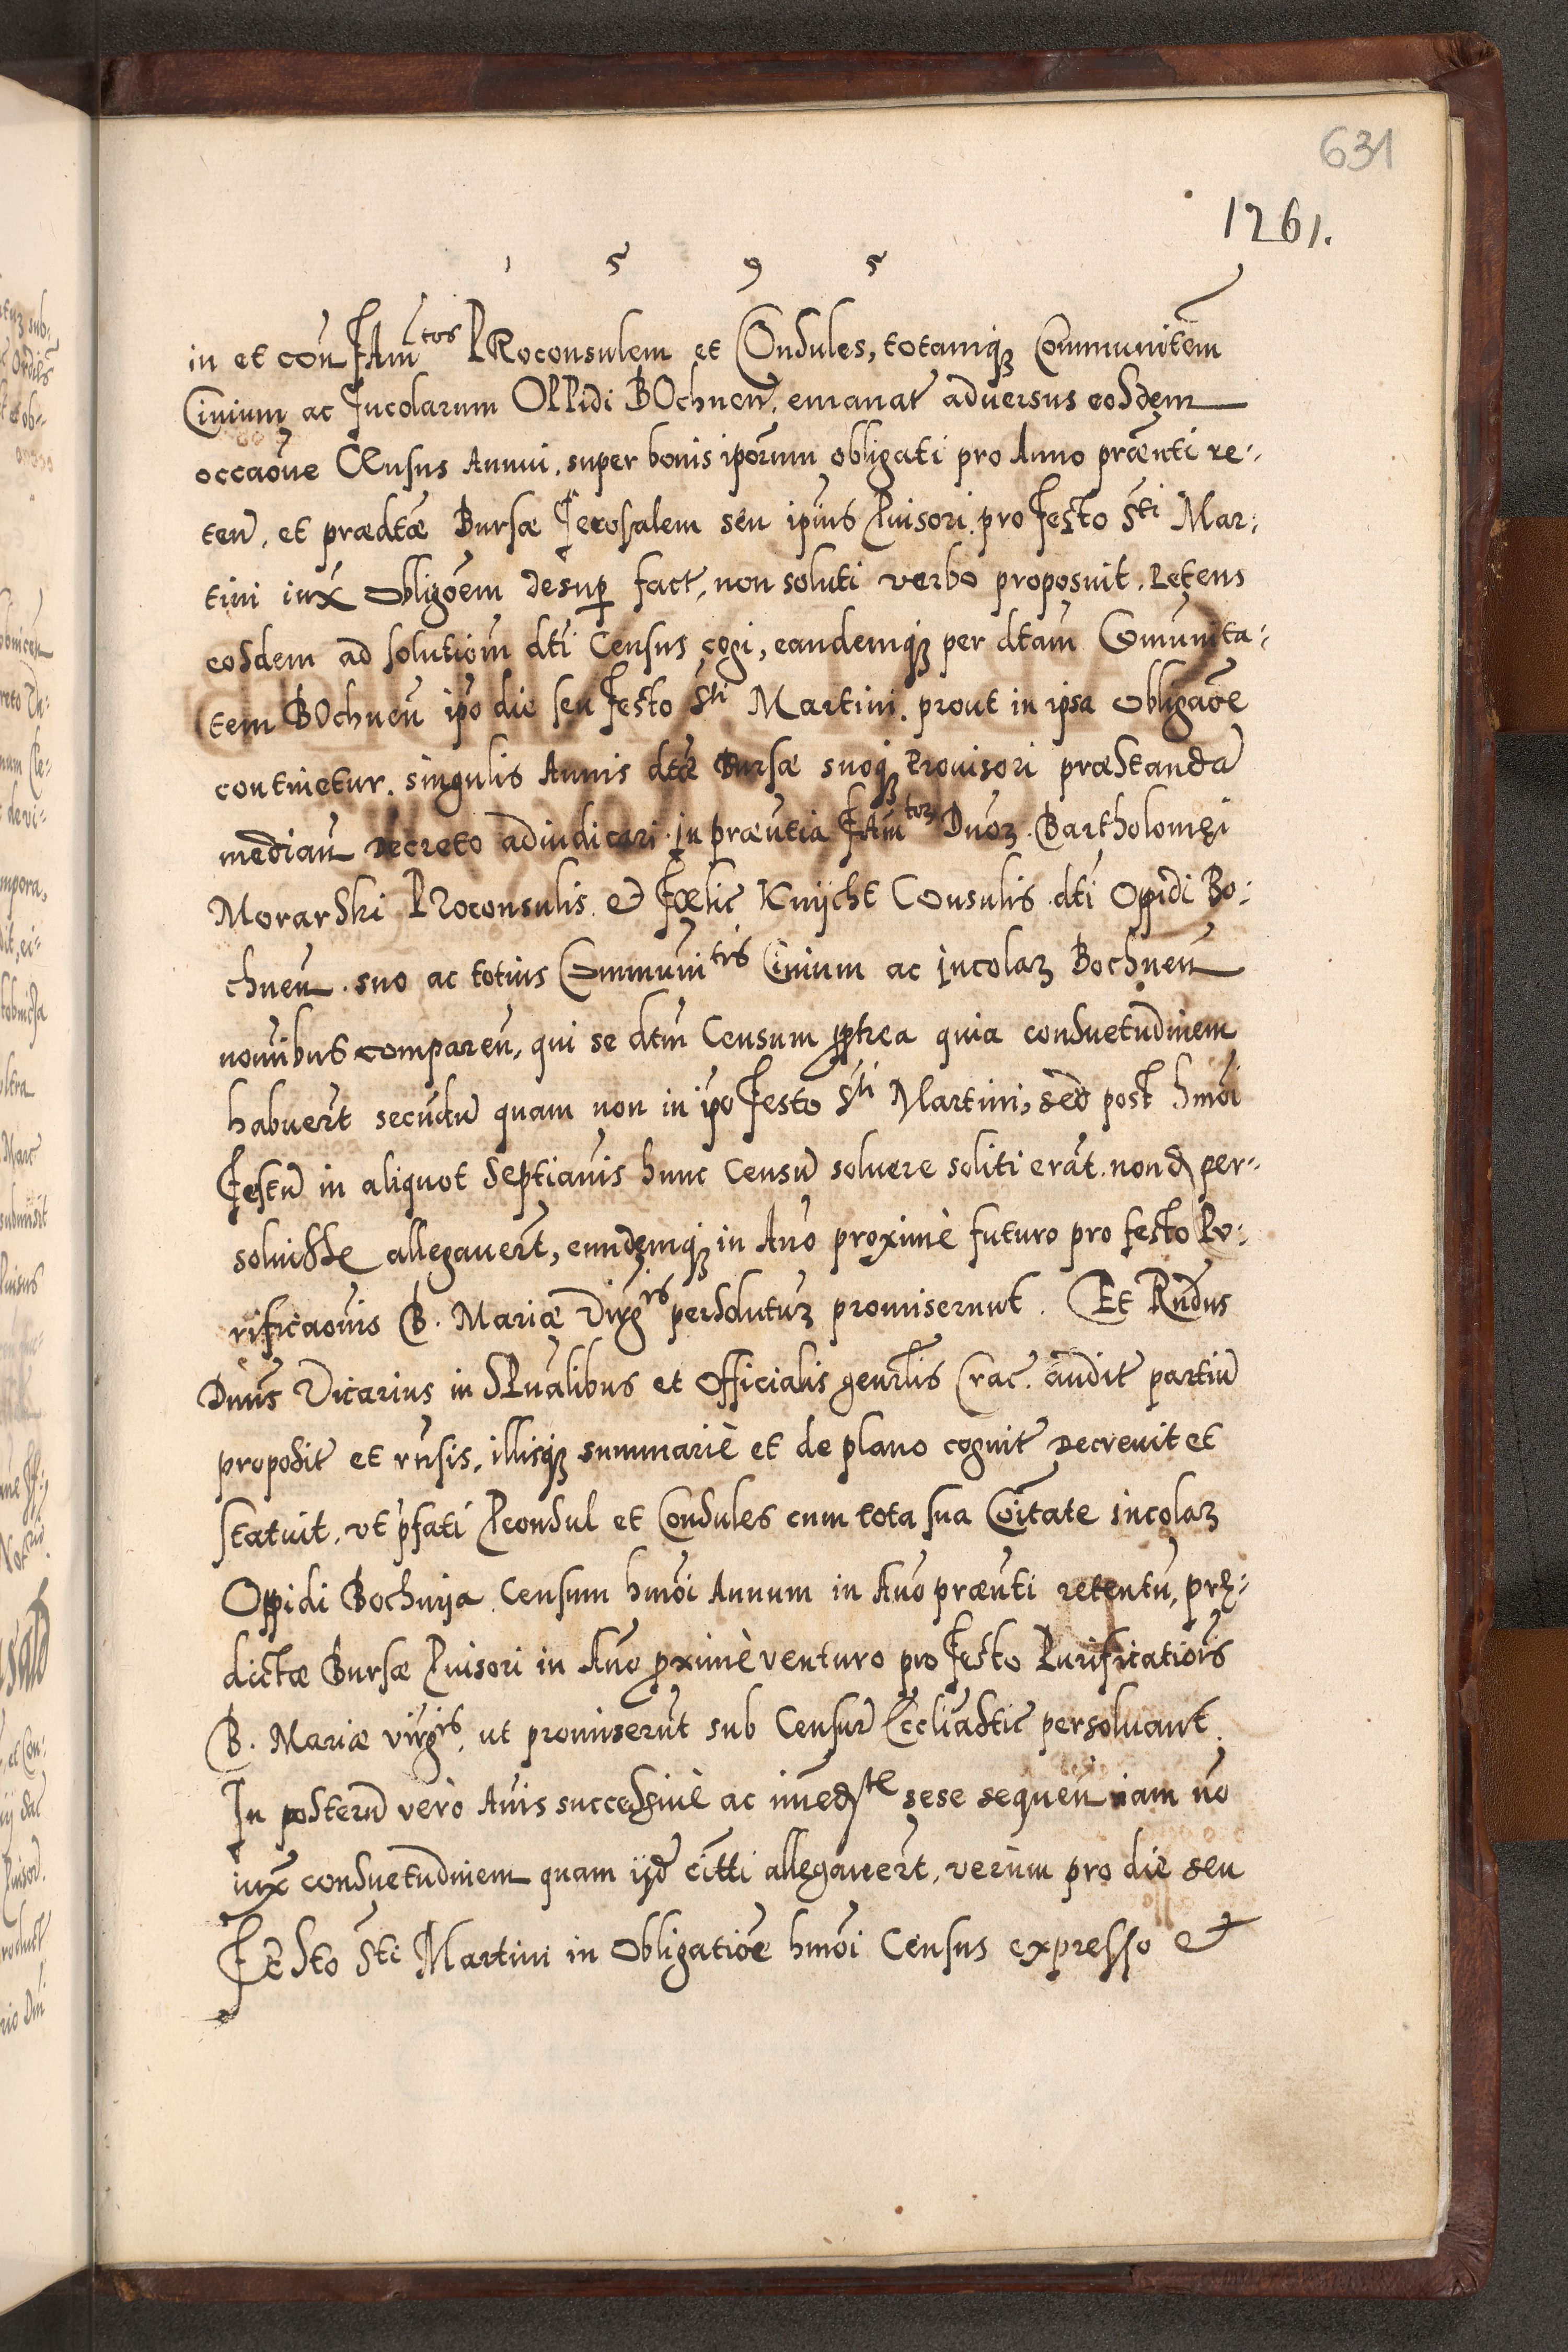 631
1261.
1 5 9 5
in et con̄ FAm̄tos PRoconsulem et COnsules, totamq₃ Communitēm
Civium ac Incolarum OPPidi BOchnen̄. emanat̄ adversus eosdem
occaōne CEnsus Annui. super bonis ip̄orum obligati pro Anno præn̄ti re-
ten̄. et prædtæ Bursæ Jerosalem seu ip̄ius Pvisori. pro Festo S̄ti Mar-
tini iux̄ obligōem desup̱ fact̄, non soluti verbo proposuit. Petens
eosdem ad solutiōm dti Census cogi, eandemq₃ per dtam Comunita-
tem BOchnen̄ ip̄o die seu Festo S̄ti Martini. prout in ipsa obligaōe
continetur. singulis Annis dtæ Bursæ suoq₃ Provisori præstandā
median̄ Decreto adiudicari. in præn̄tia FAm̄toꝝ Dnoꝝ. Bartholomęi
Morarski PRoconsulis. et Fœlic̄ Knijcht COnsulis. dti Oppidi Bo-
chnen̄. suo ac totius Communitris Civium ac incolaꝝ Bochnen̄
nom̄ibus comparen̄, qui se dtm̄ Censum ꝓptrea quia consuetudinem
habuer̄t secūdū quam non in ip̄o Festo S̄ti Martini, sed post hmōi
Festū in aliquot septian̄is hunc Censū solvere soliti erāt. nond̄ per-
solvisse allegaver̄t, eundemq₃ in An̄o proximè futuro pro festo Pu-
rificaōnis B. Mariæ Virgris persolutuꝝ promiserunt. Et Rn̄dus
Dnus Vicarius in SPūalibus et Officialis gen̄rlis Crac̄. audit̄ partiū
proposit̄ et rn̄sis, illisq₃ summariè et de plano cognit̄ Decrevit et
statuit, vt p̄fati Pconsul et Consules cum tota sua Cōītate incolaꝝ
Oppidi Bochnija Censum hmōi Annum in An̄o præn̄ti retentū, prę-
dictæ Bursæ Pvisori in An̄o ꝓximè venturo pro Festo Purificatiōis
B. Mariæ virgris, ut promiserūt sub Censur̄ Eccliāstic̄ persolvant.
In posterū verò An̄is successivè ac im̄ed̄te sese sequen̄ iam nō
iux̄ consuetudinem quam ijd̄ citti allegaver̄t, verùm pro die seu
FEsto S̄ti Martini in obligatiōe hmōi Census expresso et